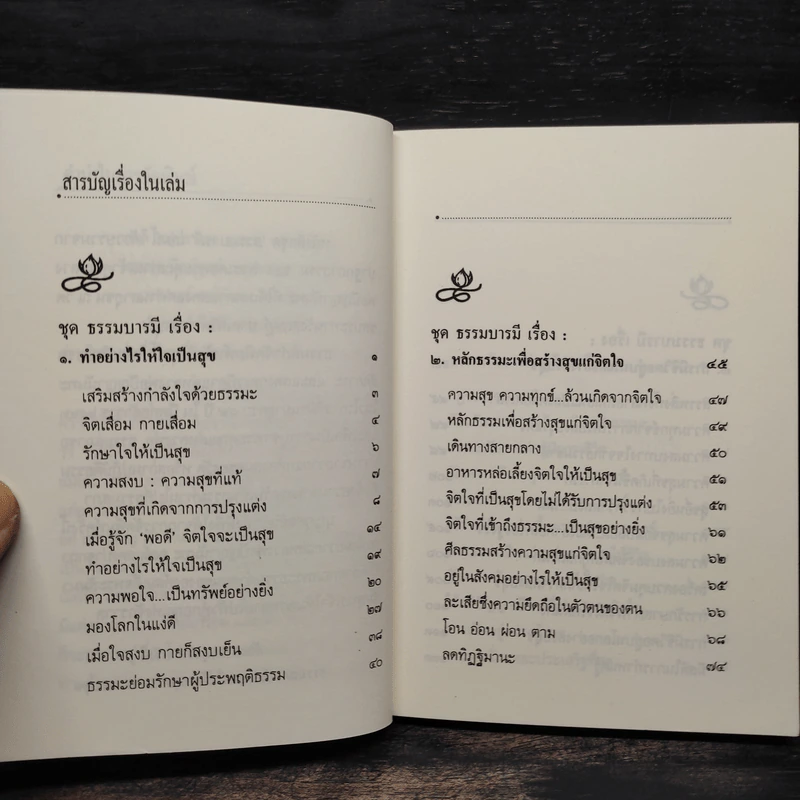 สารบัญเรื่องในเล่ม
ชุด ธรรมบารมี เรื่อง :
๑. ทำอย่างไรให้ใจเป็นสุข ๑
เสริมสร้างกำลังใจด้วยธรรมะ ๓
จิตเสื่อม กายเสื่อม ๔
รักษาใจให้เป็นสุข ๖
ความสงบ : ความสุขที่แท้ ๗
ความสุขที่เกิดจากการปรุงแต่ง ๘
เมื่อรู้จัก 'พอดี' จิตใจจะเป็นสุข ๑๔
ทำอย่างไรให้ใจเป็นสุข ๑๙
ความพอใจ...เป็นทรัพย์อย่างยิ่ง ๒๐
มองโลกในแง่ดี ๒๗
เมื่อใจสงบ กายก็สงบเย็น ๓๘
ธรรมะย่อมรักษาผู้ประพฤติธรรม ๔๐
ชุด ธรรมบารมี เรื่อง :
๒. หลักธรรมะเพื่อสร้างสุขแก่จิตใจ ๔๕
ความสุข ความทุกข์...ล้วนเกิดจากจิตใจ ๔๗
หลักธรรมเพื่อสร้างสุขแก่จิตใจ ๔๙
เดินทางสายกลาง ๕๐
อาหารหล่อเลี้ยงจิตใจให้เป็นสุข ๕๑
จิตใจที่เป็นสุขโดยไม่ได้รับการปรุงแต่ง ๕๓
จิตใจที่เข้าถึงธรรมะ...เป็นสุขอย่างยิ่ง ๖๑
ศีลธรรมสร้างความสุขแก่จิตใจ ๖๒
อยู่ในสังคมอย่างไรให้เป็นสุข ๖๕
ละเสียซึ่งความยึดถือในตัวตนของตน ๖๖
โอน อ่อน ผ่อน ตาม ๖๘
ลดทิฏฐิมานะ ๗๔